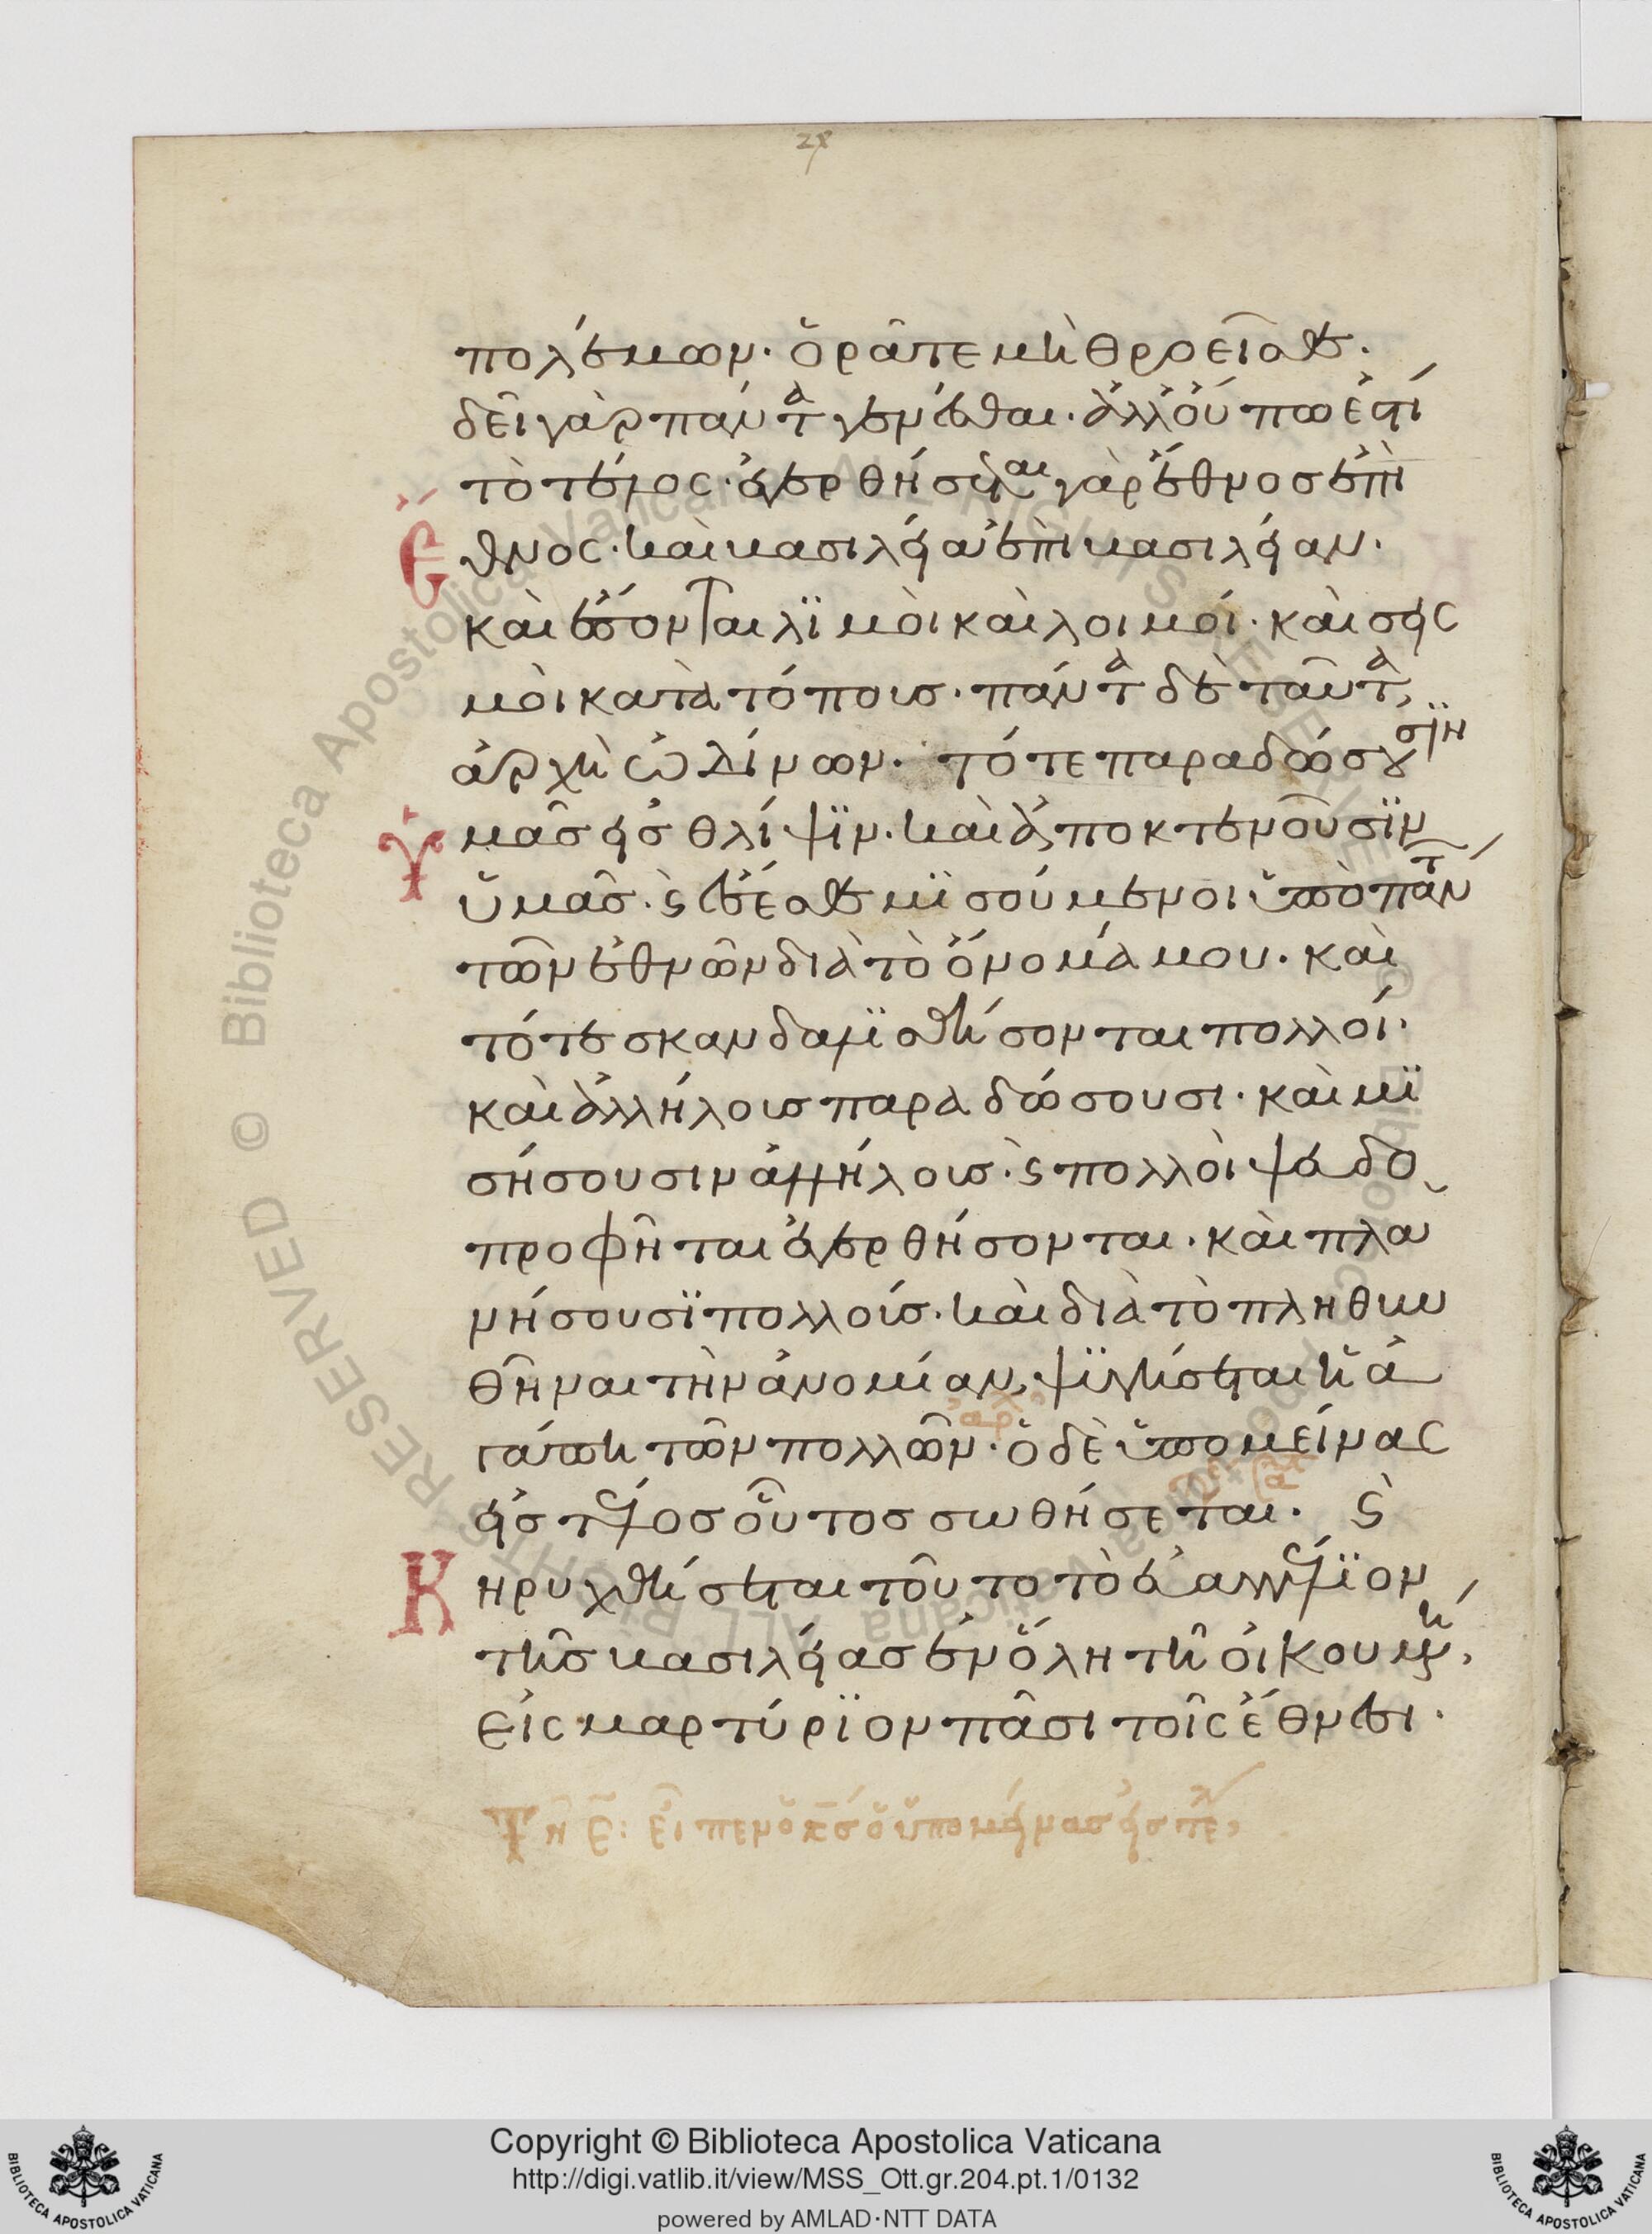 28
πολέμων· ὁρᾶτε μὴ θροεῖσθε·
δεῖ γὰρ πάντα γενέσθαι· ἀλλ' οὔπω ἐστὶ
τὸ τέλος· ἐγερθήσεται γὰρ ἔθνοσ ἐπὶ
ἔθνος· καὶ βασιλεία ἐπὶ βασιλείαν·
καὶ ἔσονται λϊμοὶ καὶ λοιμοί· καὶ σεισ
μοὶ κατὰ τόπουσ· πάντα δὲ ταῦτα,
ἀρχὴ ὠδίνων· τότε παραδώσουσϊν
ὑμᾶσ εἰσ θλίψϊν· καὶ ἀποκτενοῦσϊν
ὑμᾶσ· ϛ ἔσεσθε μϊσούμενοι ὑπὸ πάντων
τῶν ἐθνῶν διὰ τὸ ὄνομά μου· καὶ
τότε σκανδαλϊσθήσονται πολλοί·
καὶ ἀλλήλουσ παραδώσουσι· καὶ μϊ
σήσουσιν ἀλλήλουσ· ϛ πολλοὶ ψευδο
προφῆται ἐγερθήσονται· καὶ πλα
νήσουσϊ πολλούσ· καὶ διὰ τὸ πληθυν
θῆναι τὴν ἀνομίαν, ψϋγήσεται ἡ ἀ
γάπη τῶν πολλῶν· ὁ δὲ ὑπομείνας
εἰσ τέλοσ οὗτοσ σωθήσεται· ϛ
κηρυχθήσεται τοῦτο τὸ εὐαγγέλϊον
τῆσ βασιλείασ ἐν ὅλη τῆ οἰκουμένη,
εἰς μαρτύρϊον πᾶσι τοῖς ἔθνεσι·
Copyright © Biblioteca Apostolica Vaticana
http://digi.vatlib.it/view/MSS_Ott.gr.204.pt.1/0132
powered by AMLAD·NTT DATA